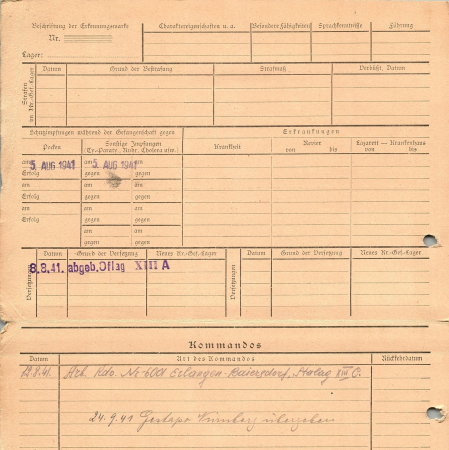 Beschriftung der Erkennungsmarke
Charaktereigenschaften u. a.
Besondere Fähigkeiten
Sprachkenntnisse
Führung
Nr.
Lager:
Strafen im Kr.-Gef.-Lager
Datum
Grund der Bestrafung
Strafmaß
Verbüßt, Datum
Schutzimpfungen während der Gefangenschaft gegen
Erkrankungen
Pocken
Sonstige Impfungen
(Ty.-Paraty., Ruhr, Cholera usw.)
Krankheit
Revier
von bis
Lazarett - Krankenhaus
von bis
am 5. AUG 1941 am 5. AUG 1941 am
Erfolg gegen gegen
am am am
Erfolg gegen gegen
am am am
Erfolg gegen gegen
am am
gegen gegen
Versetzungen
Datum
Grund der Versetzung
Neues Kr.-Gef.-Lager
Versetzungen
Datum
Grund der Versetzung
Neues Kr.-Gef.-Lager
8.8.41. abgeb. Oflag XIII A
Kommandos
Datum
Art des Kommandos
Rückkehrdatum
Arb. Kdo. Nr. 601 Erlangen-Baiersdorf, Stalag XIII C.
24.9.41 Gestapo Nürnberg übergeben